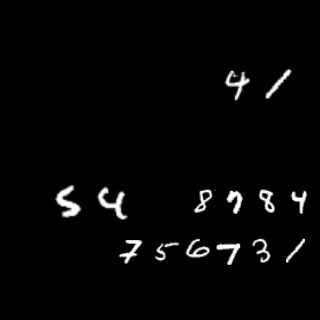 41
54 8784
756731